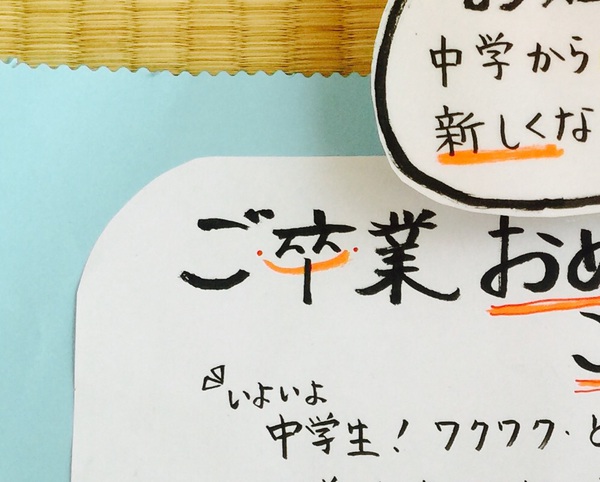 中学から
新しくな
ご卒業おめ
いよいよ
中学生!ワクワク・